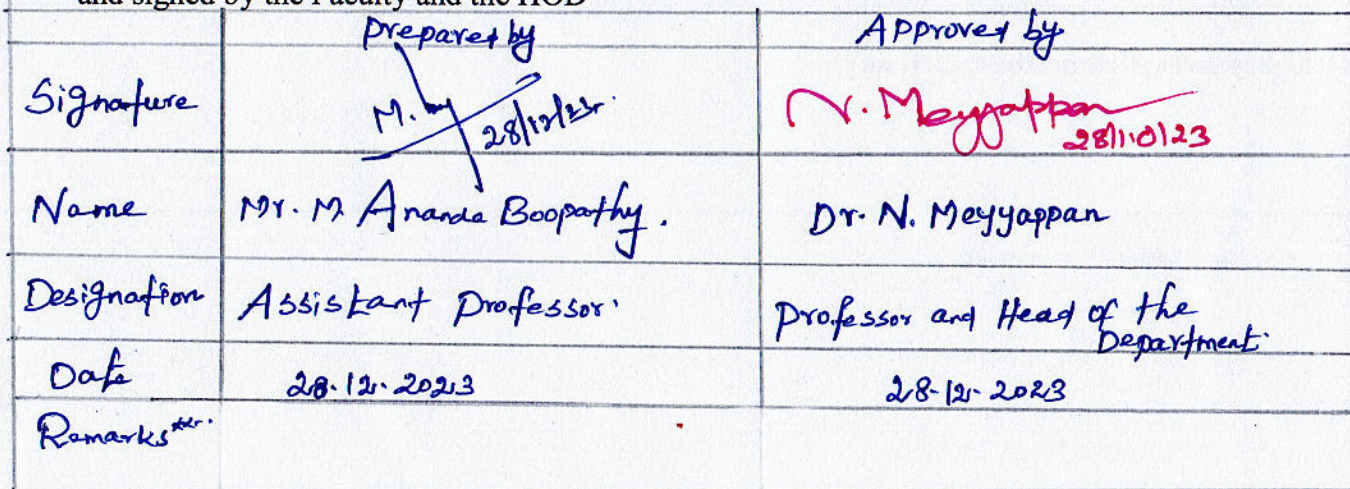 and signed by the Faculty and the HOD
Prepared by
Approved by
Signature
M.
28/12/23
N. Meyyappan
28/10/23
Name
Mr. M Ananda Boopathy.
Dr. N. Meyyappan
Designation
Assistant Professor.
Professor and Head of the
Department.
Date
28.12.2023
28-12-2023
Remarks***.